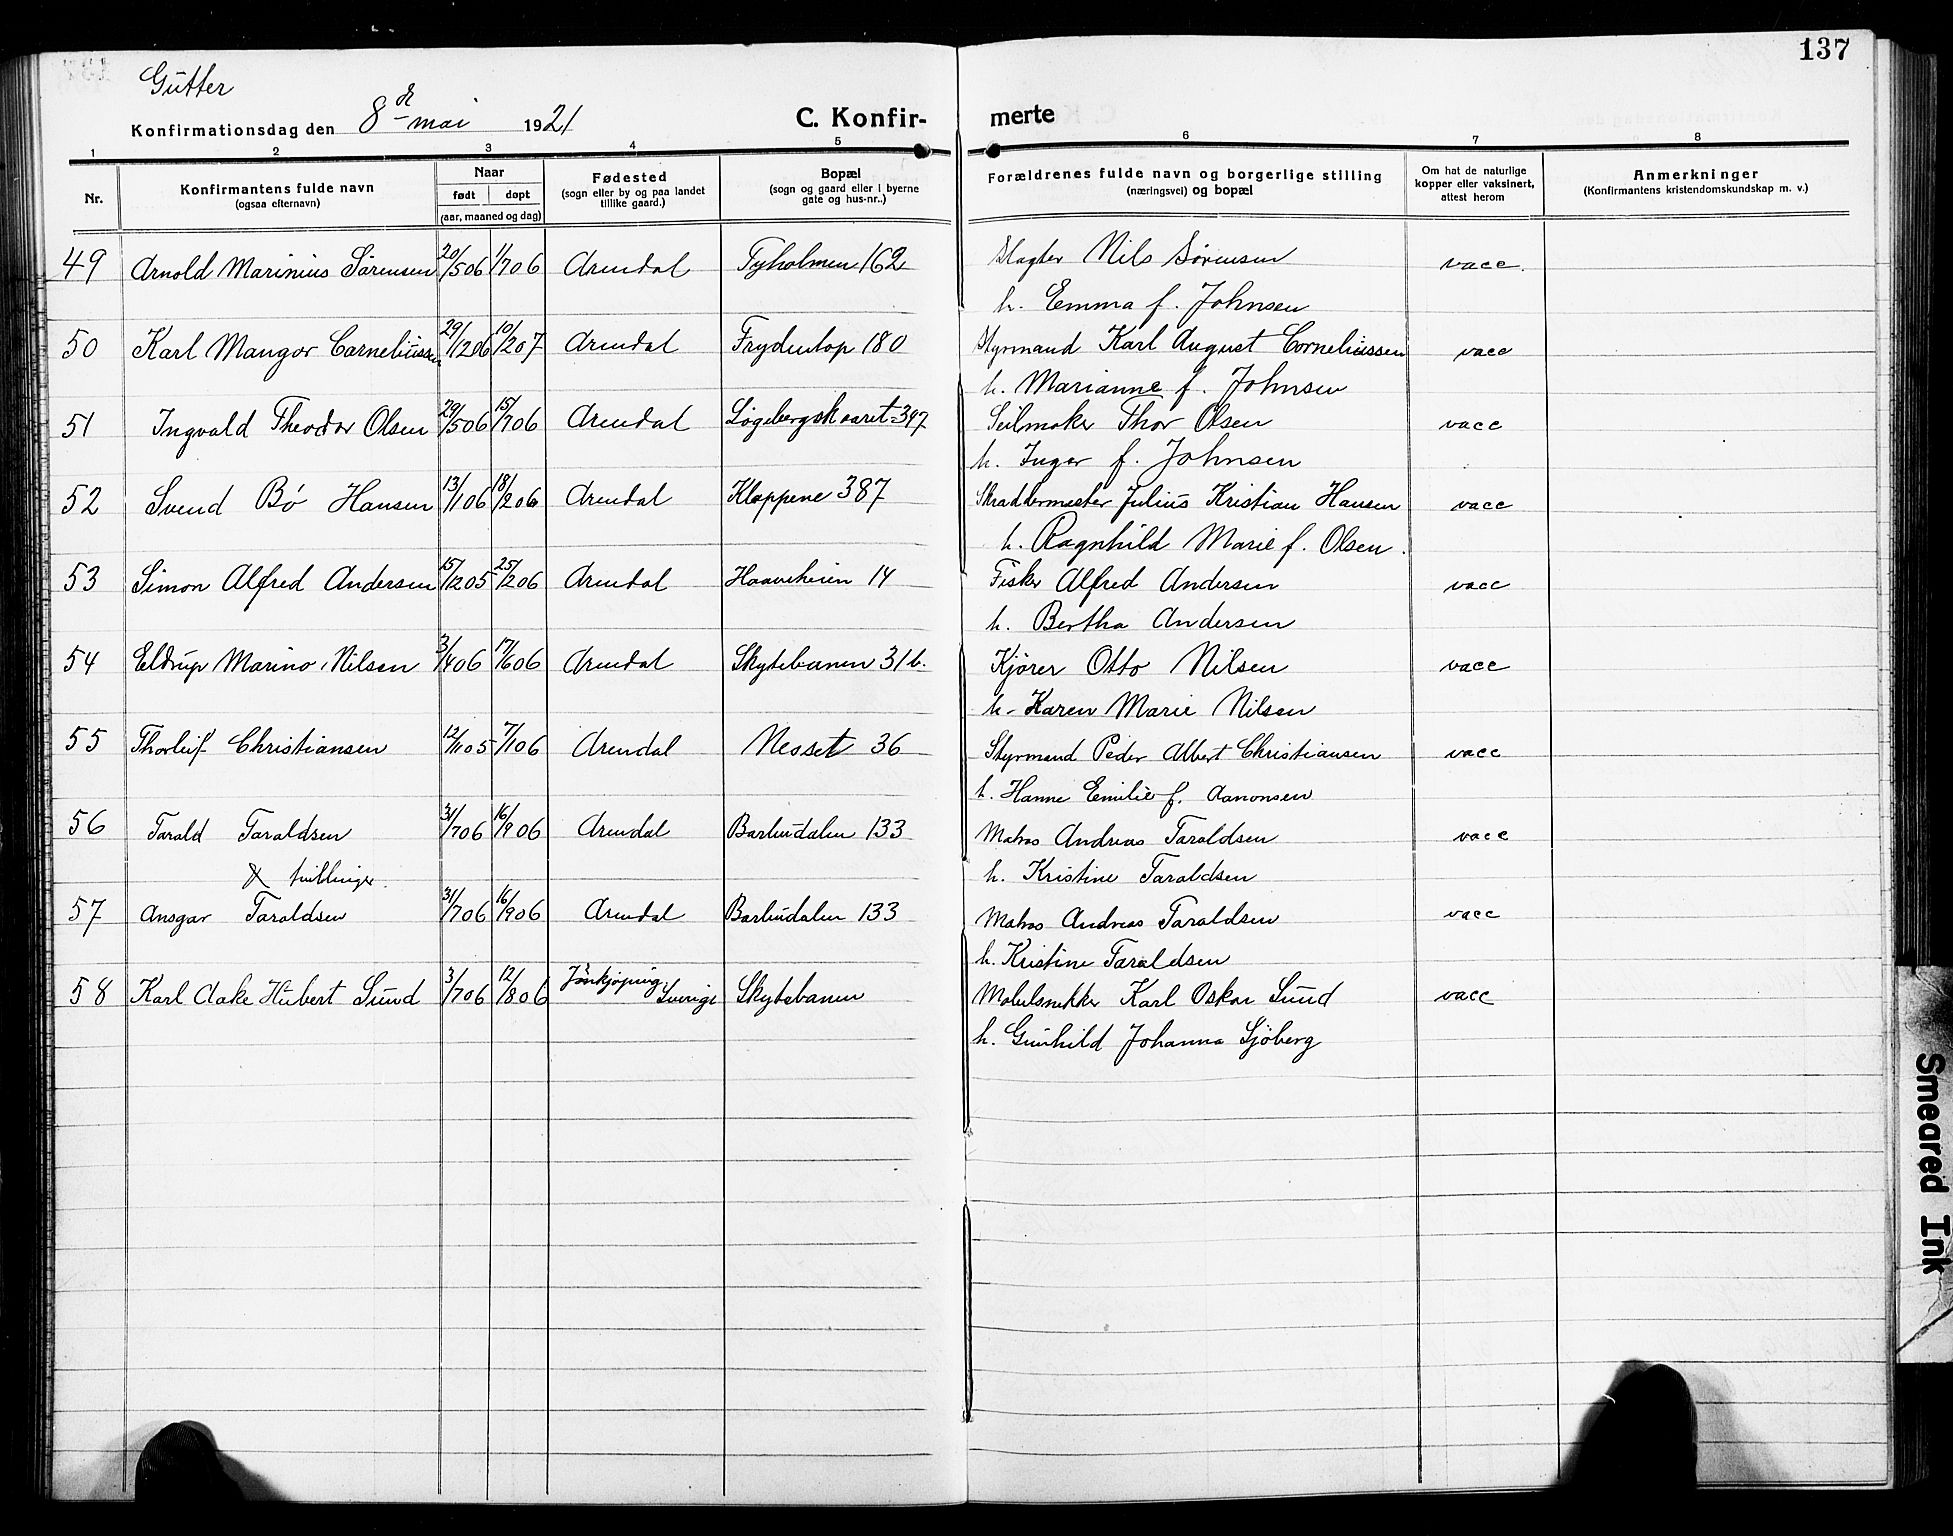 137
Gutter
Konfirmationsdag den 8de mai 1921
C. Konfir-
merte
1 2 3 4 5 6 7 8
Nr.
Konfirmantens fulde navn
(ogsaa efternavn)
Naar
født døpt
(aar, maaned og dag)
Fødested
(sogn eller by og paa landet
tillike gaard.)
Bopæl
(sogn og gaard eller i byerne
gate og hus-nr..)
Forældrenes fulde navn og borgerlige stilling
(næringsvei) og bopæl
Om hat de naturlige
kopper eller vaksinert,
attest herom
Anmerkninger
(Konfirmantens kristendomskundskap m. v.)
49 Arnold Marinius Sørensen 20/5 06 1/7 06 Arendal Tyholmen 162 Slagter Nils Sørensen vacc.
h. Emma f. Johnsen
50 Karl Mangor Corneliussen 29/12 06 10/2 07 Arendal Frydentop 180 Styrmand Karl August Corneliussen vacc
h. Marianne f. Johnsen
51 Ingvald Theodor Olsen 29/5 06 15/7 06 Arendal Løgebergskaaret 347 Seilmaker Thor Olsen vacc
h. Inger f. Johnsen
52 Svend Bó Hansen 13/1 06 18/2 06 Arendal Kloppene 387 Skraddermester Julius Kristian Hansen vacc
h. Ragnhild Marie f. Olsen.
53 Simon Alfred Andersen 15/12 05 25/2 06 Arendal Haaveheien 14 Fisker Alfred Andersen vacc
h. Bertha Andersen
54 Eldrup Marino Nilsen 3/4 06 17/6 06 Arendal Skytebanen 31 b. Kjører Otto Nilsen vacc
h. Karen Marie Nilsen
55 Thorleif Christiansen 12/1 05 7/1 06 Arendal Nesset 36 Styrmand Peder Albert Christiansen vacc
h. Hanne Emilie f. Aanonsen
56 Tarald Taraldsen 31/7 06 16/9 06 Arendal Barbudalen 133 Matros Andreas Taraldsen vacc
tvillinger. h. Kristine Taraldsen
57 Ansgar Taraldsen 31/7 06 16/9 06 Arendal Barbudalen 133 Matros Andreas Taraldsen vacc
h. Kristine Taraldsen
58 Karl Aake Hubert Sund 3/7 06 12/8 06 Jönkjøping Sverige Skytebanen Møbelsnekker Karl Oskar Sund vacc
h. Gunhild Johanna Sjöberg
Smeared Ink